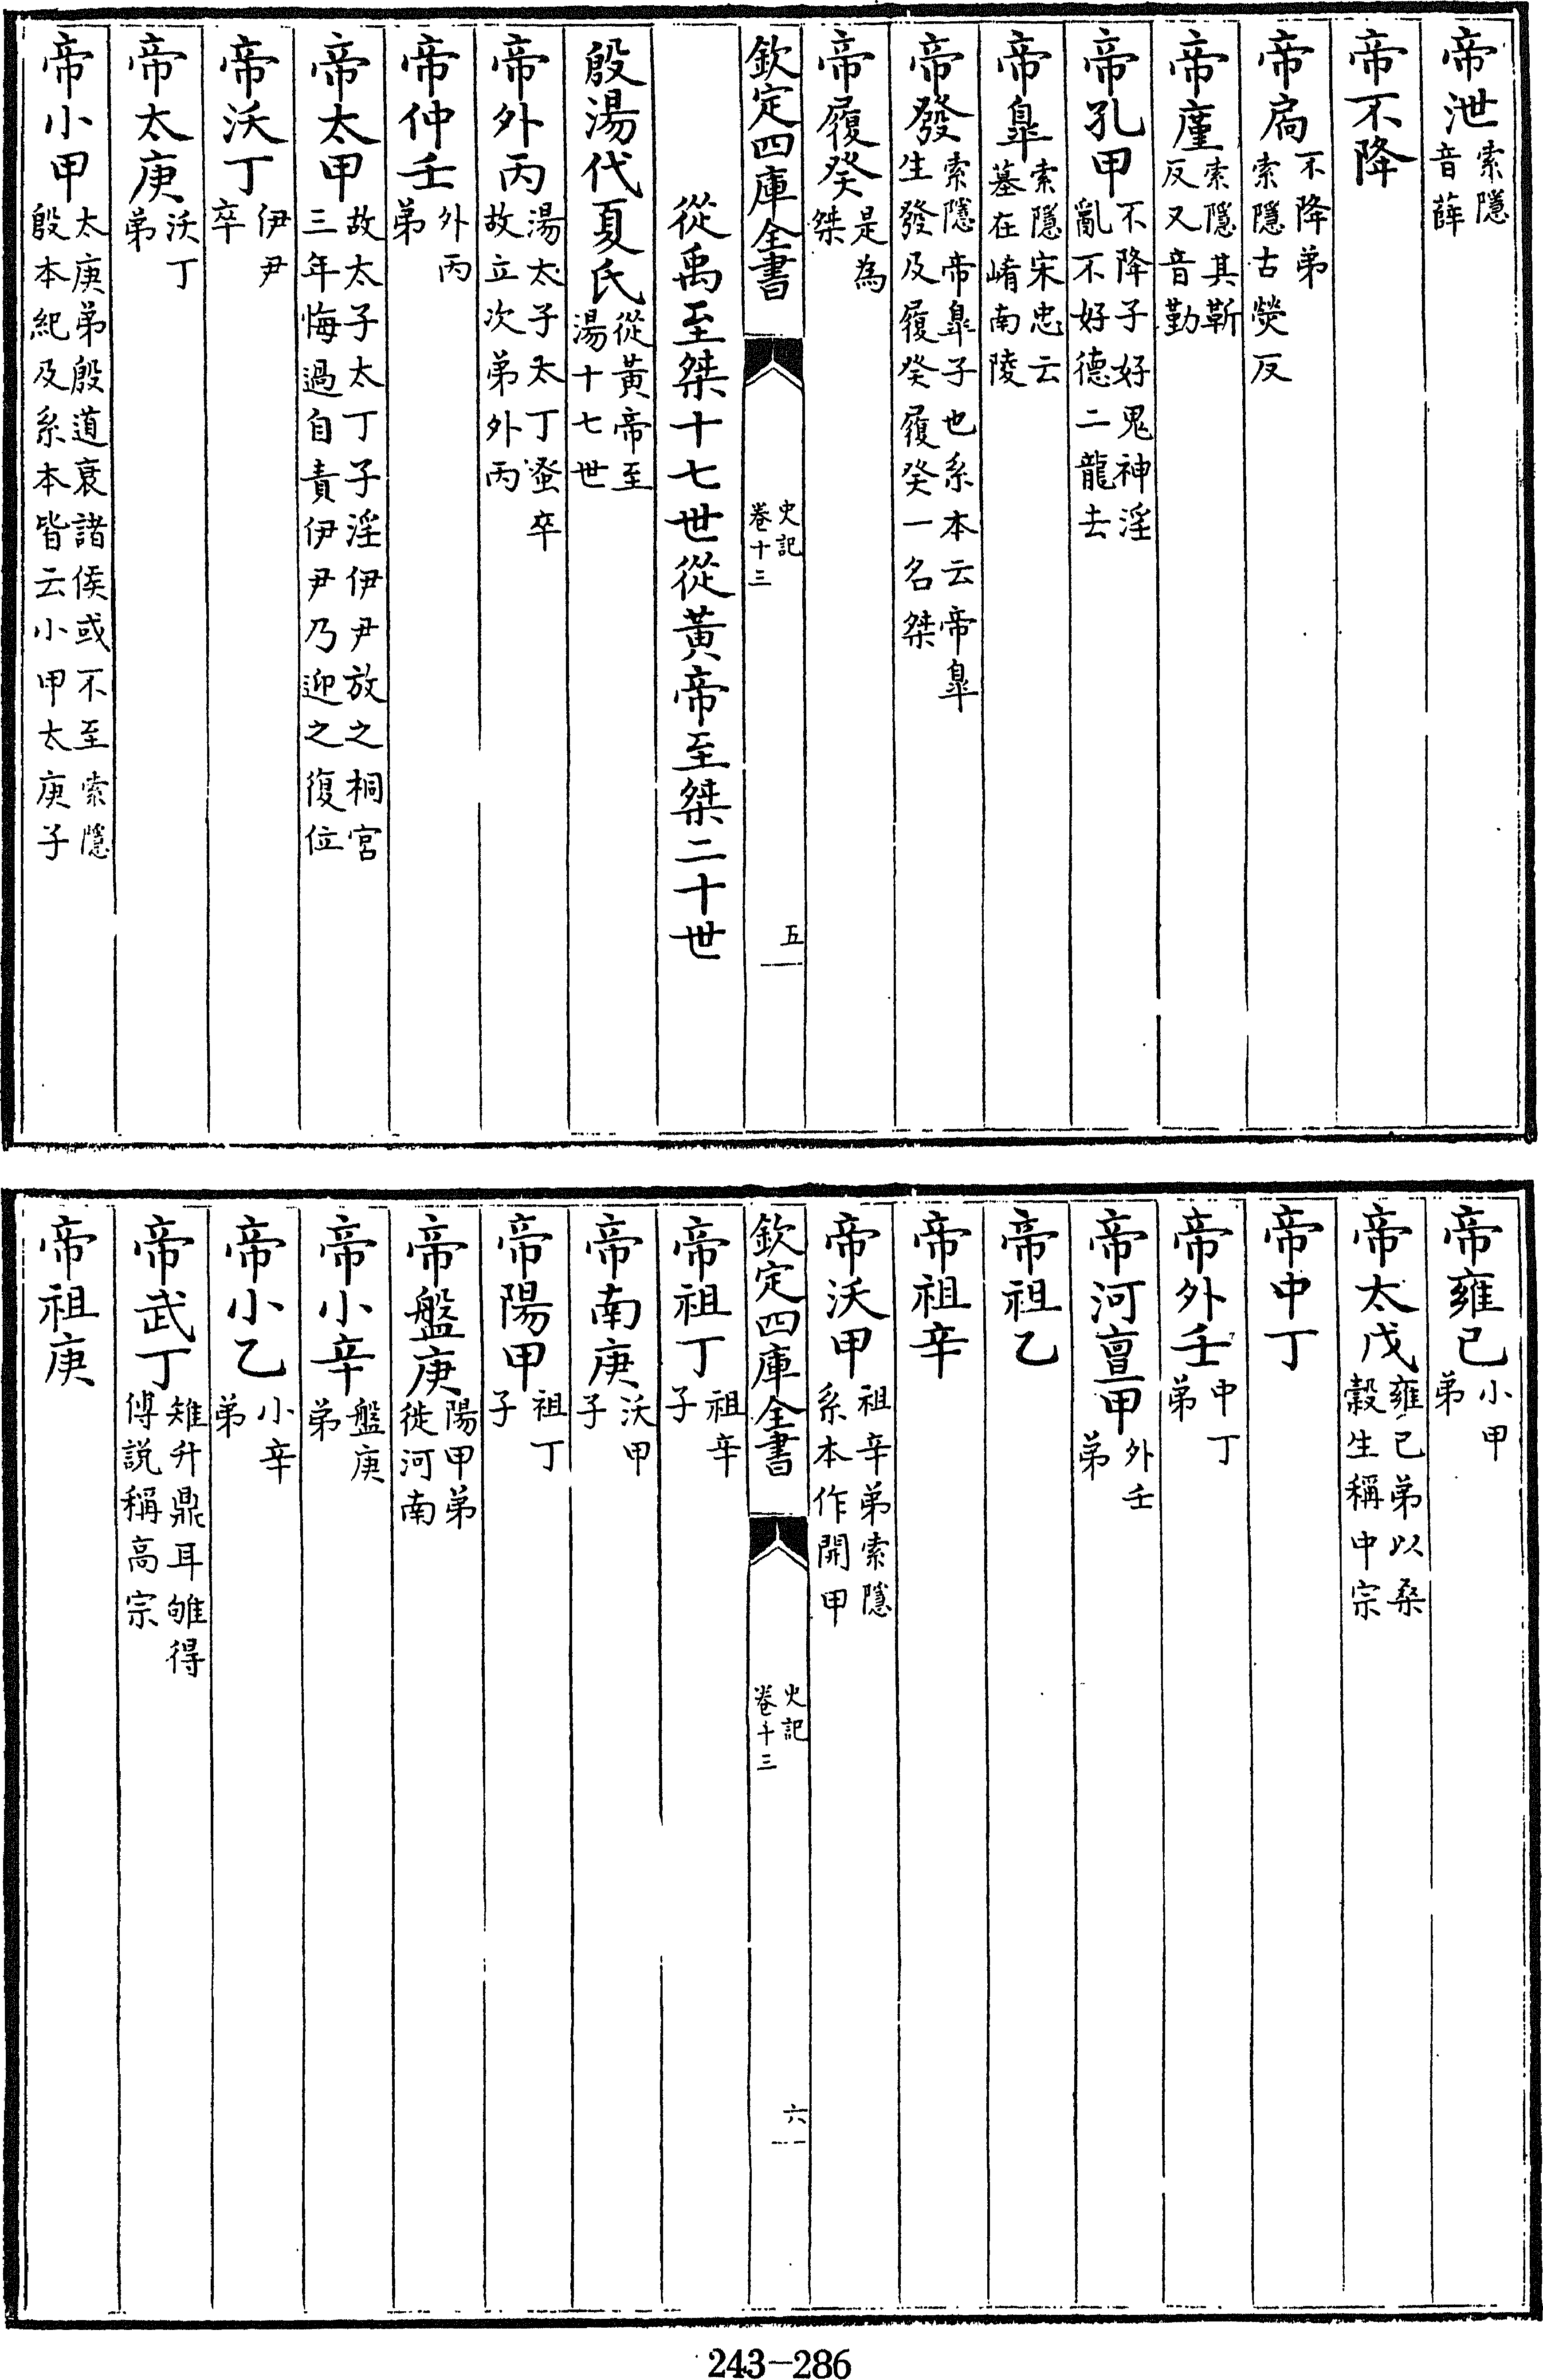 帝泄索隱音薛
帝不降
帝扃不降弟索隱古熒反
帝廑索隱其靳反又音勤
帝孔甲不降子好鬼神淫亂不好德二龍去
帝臯索隱宋忠云墓在崤南陵
帝發索隱帝臯子也系本云帝臯生發及履癸履癸一名桀
帝履癸是為桀
欽定四庫全書 史記卷十三 五
從禹至桀十七世從黃帝至桀二十世
殷湯代夏氏從黃帝至湯十七世
帝外丙湯太子太丁蚤卒故立次弟外丙
帝仲壬外丙弟
帝太甲故太子太丁子淫伊尹放之桐宮三年悔過自責伊尹乃迎之復位
帝沃丁伊尹卒
帝太庚沃丁弟
帝小甲太庚弟殷道衰諸侯或不至索隱殷本紀及系本皆云小甲太庚子
帝雍己小甲弟
帝太戊雍己弟以桑榖生稱中宗
帝中丁
帝外壬中丁弟
帝河亶甲外壬弟
帝祖乙
帝祖辛
帝沃甲祖辛弟索隱系本作開甲
欽定四庫全書 史記卷十三 六
帝祖丁祖辛子
帝南庚沃甲子
帝陽甲祖丁子
帝盤庚陽甲弟徙河南
帝小辛盤庚弟
帝小乙小辛弟
帝武丁雉升鼎耳雊得傅説稱高宗
帝祖庚
243-286